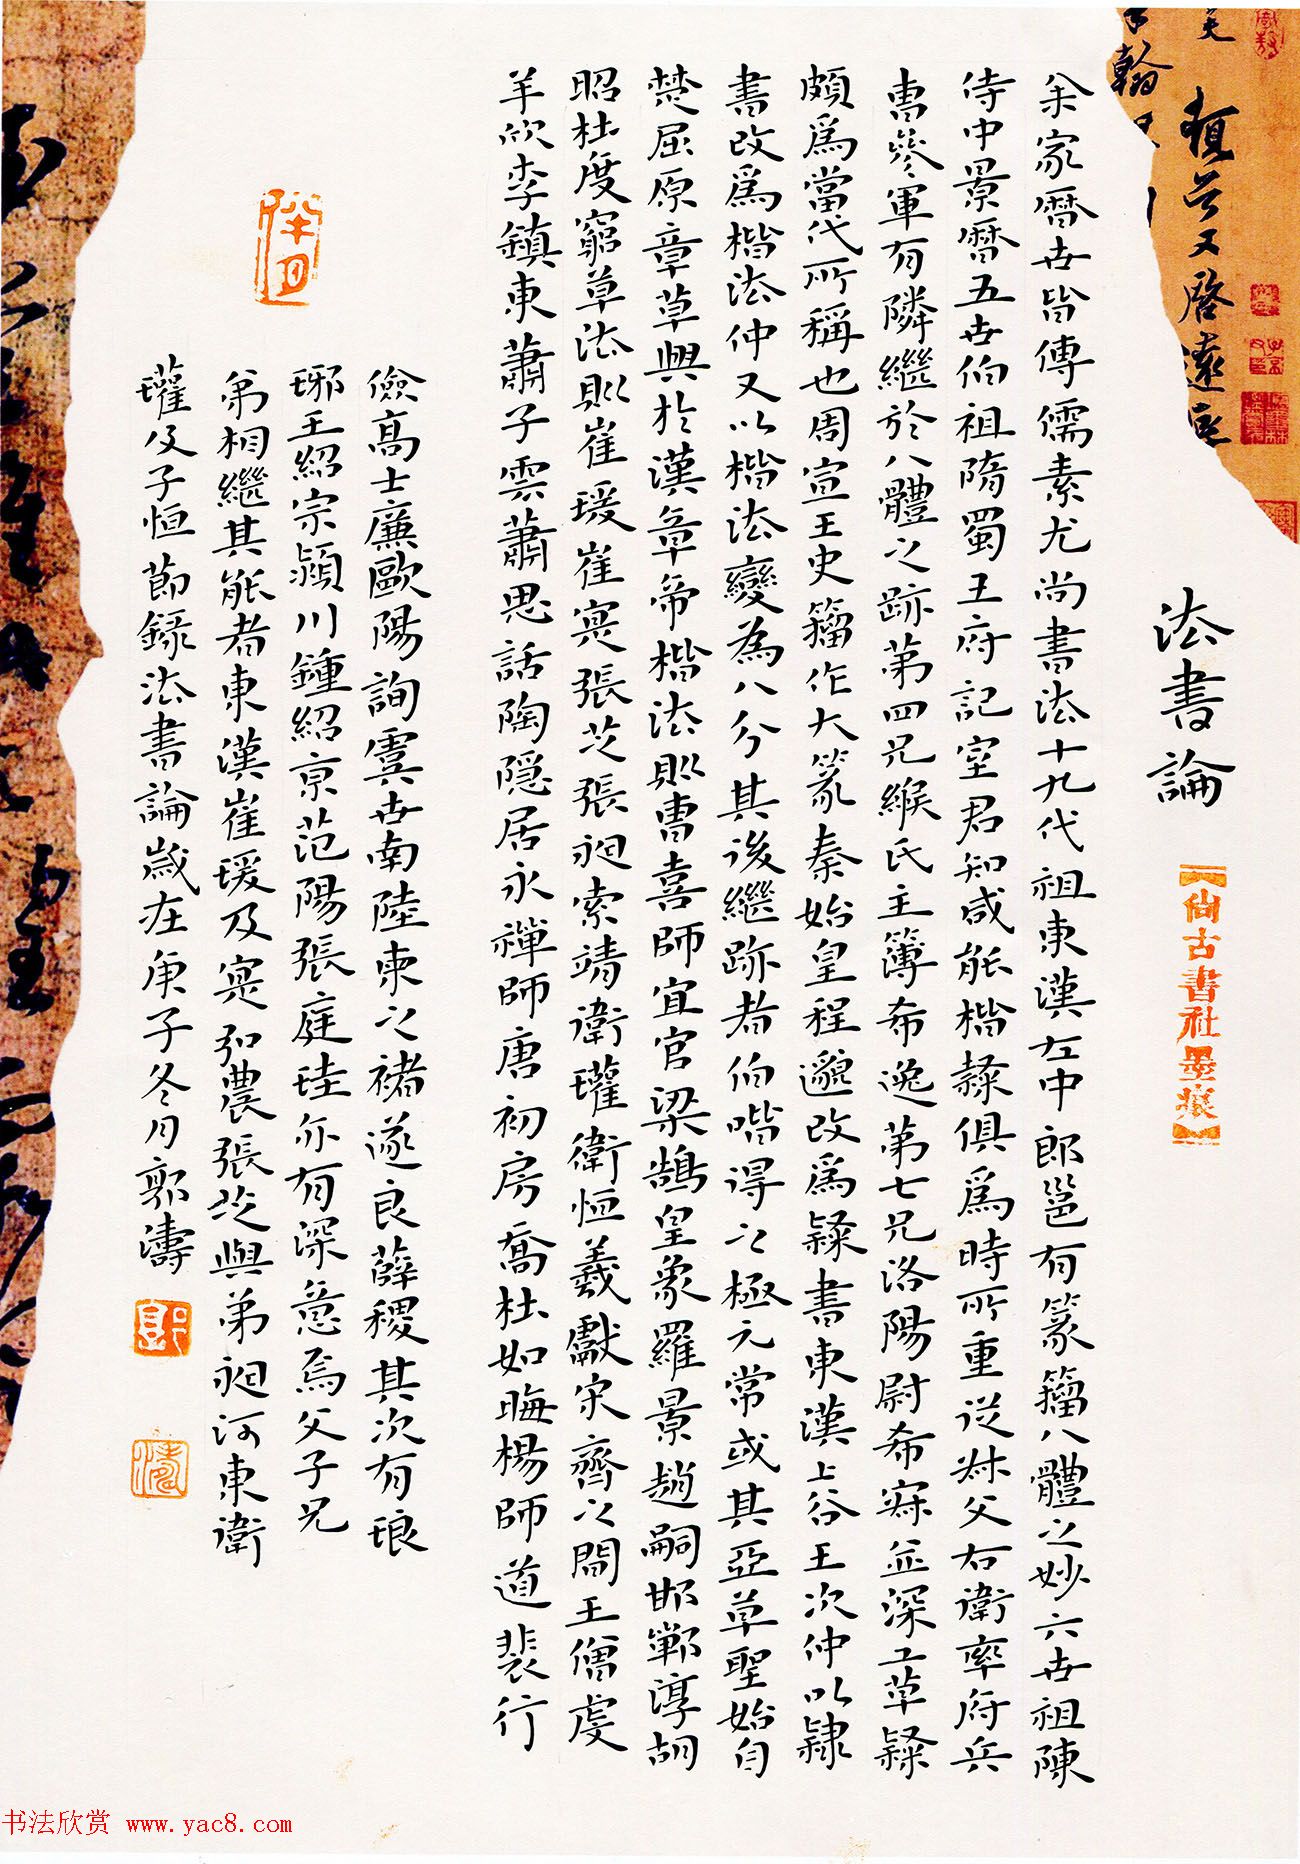 法書論
尚古書社墨痕
余家曆世皆傳儒素尤尚書法十九代祖東漢左中郎邕有篆籀八體之妙六世祖陳
侍中景曆五世伯祖隋蜀王府記室君知咸能楷隸俱為時所重從叔父右衛率府兵
曹參軍有隣繼於八體之跡第四兄緱氏主簿希逸第七兄洛陽尉希寂並深工草隸
頗爲當代所稱也周宣王史籀作大篆秦始皇程邈改爲隸書東漢上谷王次仲以隸
書改爲楷法仲又以楷法變為八分其後繼跡者伯喈得之極元常或其亞草聖始自
楚屈原章草興於漢章帝楷法則曹喜師宜官梁鵠皇象羅景趙嗣邯鄲淳胡
昭杜度窮草法則崔瑗崔寔張芝張昶索靖衛瓘衛恒羲獻宋齊之間王僧虔
羊欣李鎮東蕭子雲蕭思話陶隱居永禪師唐初房喬杜如晦楊師道裴行
儉高士廉歐陽詢虞世南陸柬之褚遂良薛稷其次有琅
琊王紹宗潁川鍾紹京范陽張庭珪亦有深意焉父子兄
弟相繼其能者東漢崔瑗及寔弘農張芝與弟昶河東衛
瓘及子恒節錄法書論歲在庚子冬月郭濤
书法欣赏 www.yac8.com